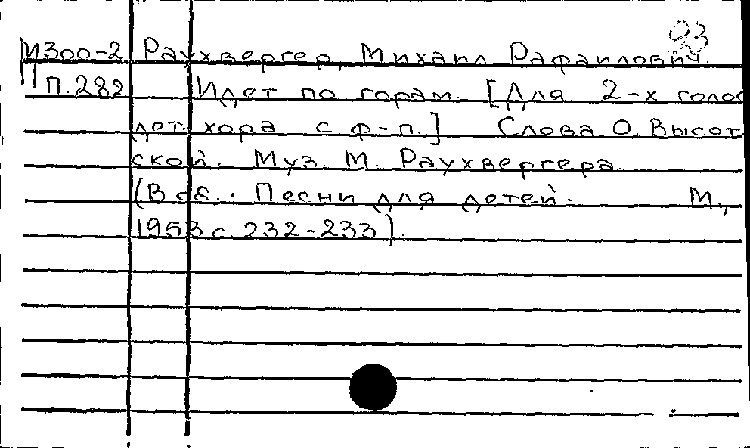 93
М300-2 Раухвергер, Михаил Рафаилович.
П.282 Идет по горам. [Для 2-х голос
дет. хора с ф-п.] Слова О. Высот
ской. Муз. М. Раухвергера
(В сб.: Песни для детей. М.,
1953 с 232-233).